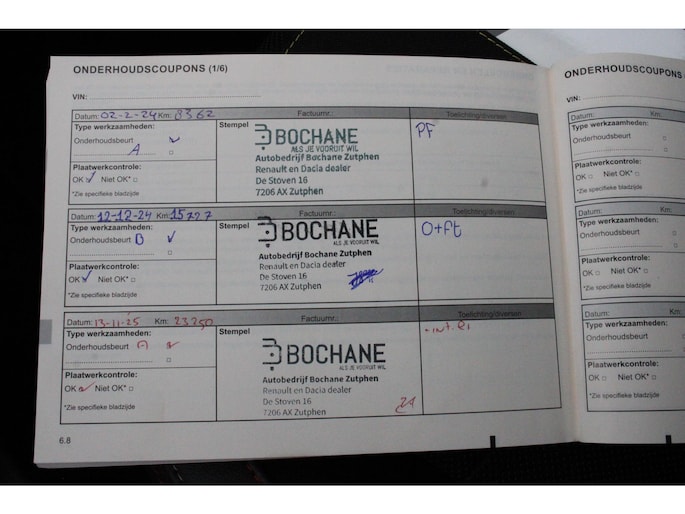 ONDERHOUDSCOUPONS (1/6)
VIN:
Datum: 02-2-24 Km: 8362 Factuurnr.: Toelichting/diversen
Type werkzaamheden: Stempel PF
Onderhoudsbeurt
A
BOCHANE
ALS JE VOORUIT WIL
Autobedrijf Bochane Zutphen
Renault en Dacia dealer
De Stoven 16
7206 AX Zutphen
Plaatwerkcontrole:
OK Niet OK*
*Zie specifieke bladzijde
Datum: 12-12-24 Km: 15727 Factuurnr.: Toelichting/diversen
Type werkzaamheden: Stempel O+ft
Onderhoudsbeurt B
BOCHANE
ALS JE VOORUIT WIL
Autobedrijf Bochane Zutphen
Renault en Dacia dealer
De Stoven 16
7206 AX Zutphen
Plaatwerkcontrole:
OK Niet OK*
*Zie specifieke bladzijde
Datum: 13-11-25 Km: 23250 Factuurnr.: Toelichting/diversen
Type werkzaamheden: Stempel
Onderhoudsbeurt A
BOCHANE
ALS JE VOORUIT WIL
Autobedrijf Bochane Zutphen
Renault en Dacia dealer
De Stoven 16
7206 AX Zutphen
Plaatwerkcontrole:
OK Niet OK*
*Zie specifieke bladzijde
6.8
ONDERHOUDSCOUPONS
VIN:
Datum: Km:
Type werkzaamheden:
Onderhoudsbeurt
Plaatwerkcontrole:
OK Niet OK*
*Zie specifieke bladzijde
Datum: Km:
Type werkzaamheden:
Onderhoudsbeurt
Plaatwerkcontrole:
OK Niet OK*
*Zie specifieke bladzijde
Datum: Km:
Type werkzaamheden:
Onderhoudsbeurt
Plaatwerkcontrole:
OK Niet OK*
*Zie specifieke bladzijde